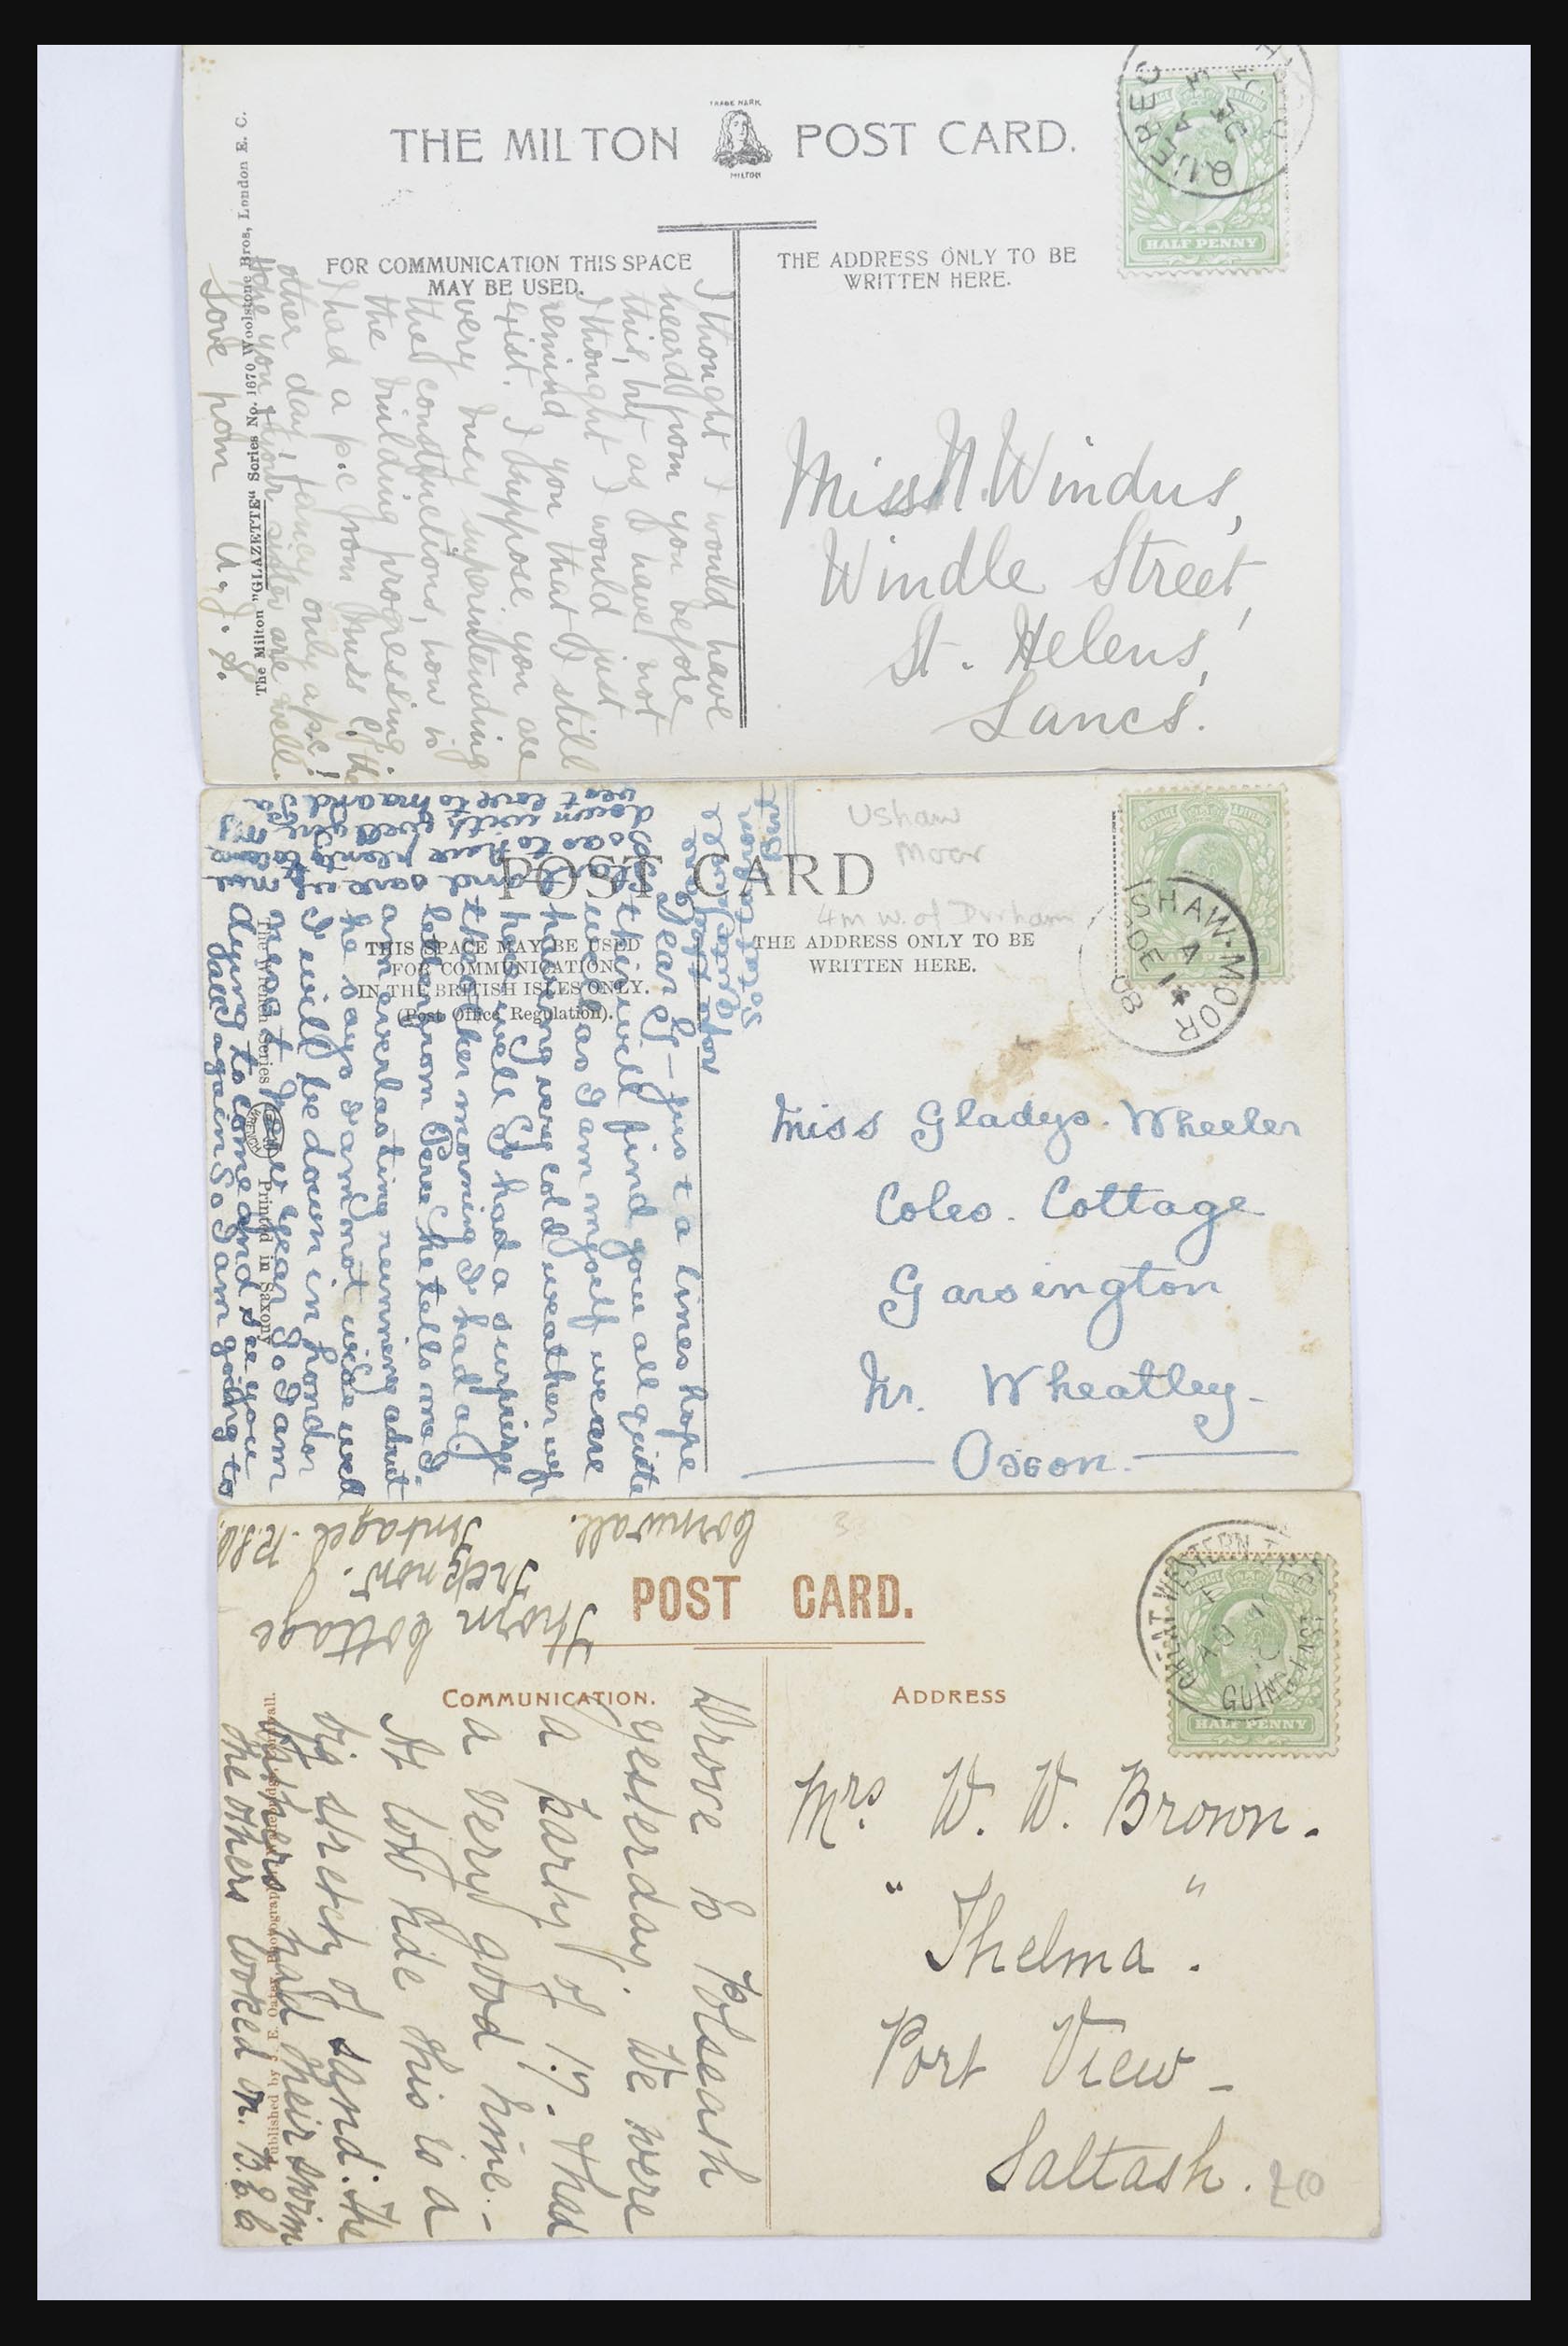 TRADE MARK
THE MILTON POST CARD.
MILTON
FOR COMMUNICATION THIS SPACE
MAY BE USED.
THE ADDRESS ONLY TO BE
WRITTEN HERE.
HALF PENNY
The Milton "GLAZETTE" Series No. 1670 Woolstone Bros, London E. C.
I thought I would have
heard from you before
this, but as I have not
I thought I would just
remind you that I still
exist. I suppose you are
very busy superintending
the constructions, how is
the building progressing.
I had a p.c from Miss C. the
other day, fancy only a p.c!
Hope you & your sister are well.
Love from U. J. S.
Miss N. Windus,
Windle Street,
St. Helens,
Lancs.
Ushaw
Moor
4m w. of Durham
POST CARD
THIS SPACE MAY BE USED
FOR COMMUNICATION
IN THE BRITISH ISLES ONLY.
(Post Office Regulation).
THE ADDRESS ONLY TO BE
WRITTEN HERE.
SHAW-MOOR
A
DE 1
08
The Wrench Series
Printed in Saxony
Dear G- Just a lines hope
this will find you all quite
well as I am myself we are
having very cold weather up
here well G I had a surprise
the other morning I had a
letter from Perce he tells me I
am everlasting running about
he says I am not wide well
I will be down in London
next New Year So I am
dying to come and see you
all again So I am going to
Miss Gladys. Wheeler
Coles. Cottage
Garsington
Nr. Wheatley-
Oxon.
POST CARD.
COMMUNICATION.
ADDRESS
GREAT WESTERN
HALF PENNY
Thorn Cottage
Treknow.
Tintagel. R.S.O.
Cornwall.
Drove to Polseath
yesterday. We were
a party of 17. & had
a very good time.-
At low tide this is a
big stretch of sand. The
bathers had their swim
the others looked on. B.E.B
Mrs. W. W. Brown.
"Thelma".
Port View-
Saltash.
20